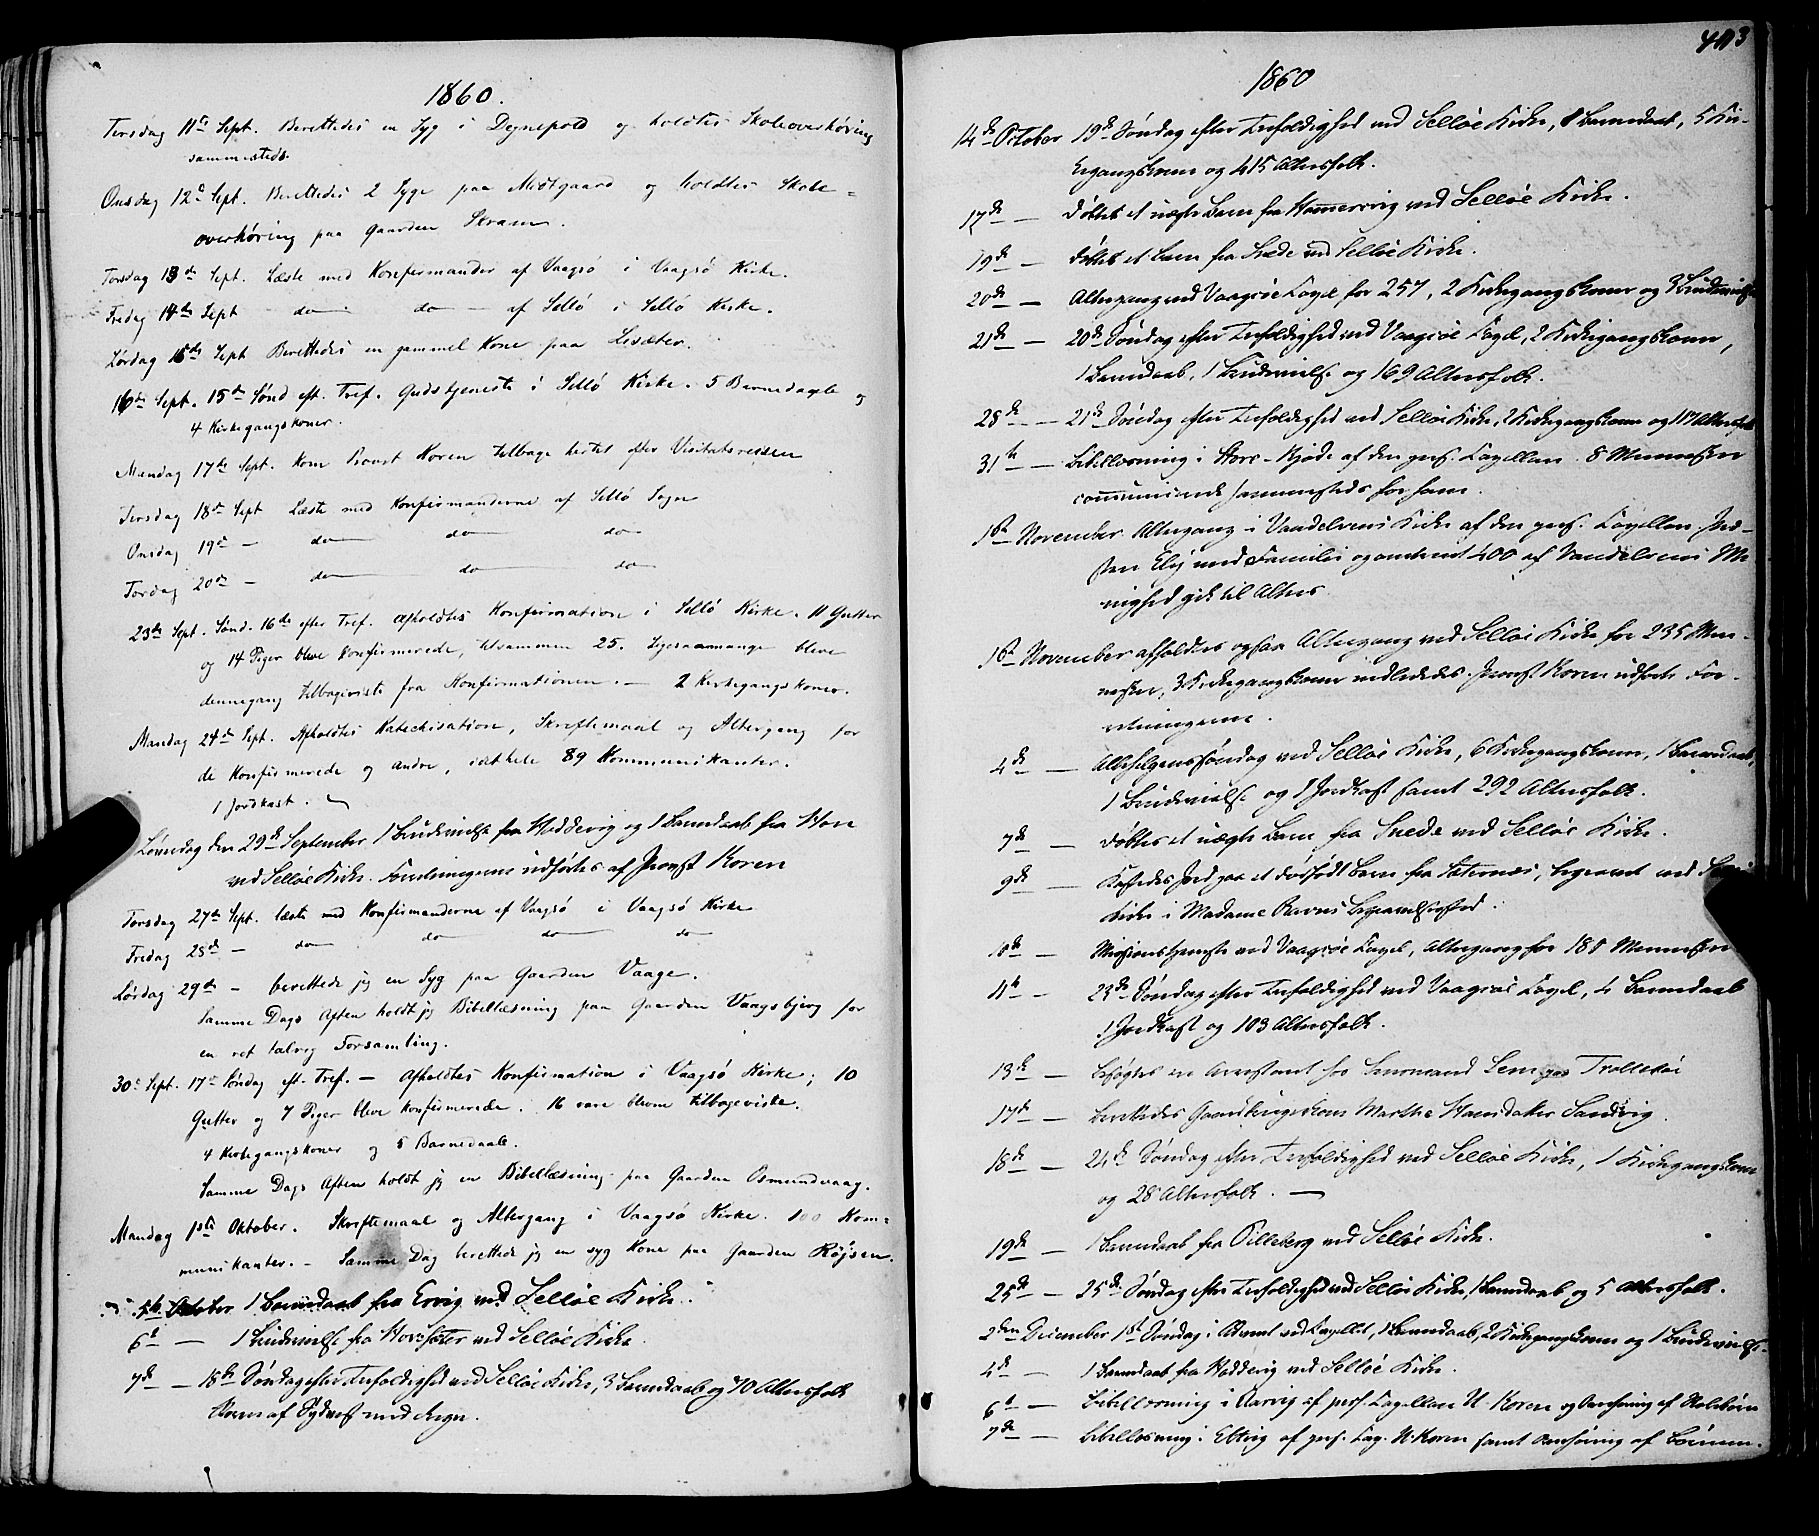 1860.
Tirsdag 11te Sept. Berettedes en Syg i Degnepold og holdtes Skoleoverhøring
sammesteds.
Onsdag 12te Sept. Berettedes 2 Syge paa Midtgaard og holdtes Skole-
overhøring paa Gaarden Skram.
Torsdag 13de Sept. Læste med Konfirmander af Vaagsö i Vaagsö Kirke.
Fredag 14de Sept do do af Sellö i Sellö Kirke.
Lørdag 15de Sept Berettedes en gammel Kone paa Lisæter.
16de Sept. 15de Sönd eft. Tref. Gudstjeneste i Sellö Kirke. 5 Barnedaabe og
4 Kirkegangskoner.
Mandag 17de Sept. kom Provst Koren tilbage hertil efter Visitatsreisen
Tirsdag 18de Sept Læste med Konfirmanderne af Sellö Sogn
Onsdag 19de — do do do
Torsdag 20de — do do do
23de Sept. Sönd. 16de efter Tref. Afholdtes Konfirmation i Sellö Kirke. 11 Gutter
og 14 Piger bleve konfirmerede, tilsammen 25. Ligesaamange bleve
dennegang tilbageviste fra Konfirmationen. — 2 Kirkegangskoner.
Mandag 24de Sept. Afholdtes Katechisation, Skriftemaal og Altergang for
de Konfirmerede og andre, idethele 89 Kommunikanter.
1 Jordkast.
Løverdag den 29de September 1 Brudevielse fra Hoddevig og 1 Barnedaab fra Hove
ved Selløe Kirke. Forretningerne udførtes af Provst Koren
Torsdag 27de Sept. læste med Konfirmanderne af Vaagsö i Vaagsö Kirke
Fredag 28de — do do do do
Lørdag 29de — berettede jeg en Syg paa Gaarden Vaage.
Samme Dags Aften holdt jeg Bibellæsning paa Gaarden Vaagsbjerg for
en ret talrig Forsamling.
30te Sept. 17de Søndag eft. Tref. — Afholdtes Konfirmation i Vaagsö Kirke; 10
Gutter og 7 Piger bleve konfirmerede. 16 vare blevne tilbageviste.
4 Kirkegangskoner og 5 Barnedaab.
Samme Dags Aften holdt jeg en Bibellæsning paa Gaarden Osmundvaag.
Mandag 1ste Oktober. Skriftemaal og Altergang i Vaagsö Kirke. 100 Kom-
munikanter. — Samme Dag berettede jeg en syg Kone paa Gaarden Röjsen.
5te October 1 Barnedaab fra Ervig ved Selløe Kirke.
6te — 1 Brudevielse fra Hovesæter ved Selløe Kirke
7de — 18de Søndag efter Trefoldighed ved Selløe Kirke, 3 Barnedaab og 70 Altersfolk
Storm af Sydvest med Regn.
403
1860
14de October 19de Søndag efter Trefoldighed ved Selløe Kirke, 8 Barnedaab, 5 Kir-
kegangskoner og 415 Altersfolk.
17de — Døbtes et uægte Barn fra Hammervig ved Selløe Kirke.
19de — Døbtes et Barn fra Snede ved Selløe Kirke.
20de — Altergang ved Vaagsøe Capel for 257, 2 Kirkegangskoner og 3 Brudevielser
21de — 20de Søndag efter Trefoldighed ved Vaagsøe Capel, 2 Kirkegangskoner,
1 Barnedaab, 1 Brudevielse og 169 Altersfolk.
28de — 21de Søndag efter Trefoldighed ved Selløe Kirke, 2 Kirkegangskoner og 117 Altersfolk
31te — Bibellæsning i Hore-Kjøde af den pers. Capellan. 8 Mennesker
communicerede sammesteds for ham.
1ste November Altergang i Vandelvens Kirke af den pers. Capellan
med Familie og omtrent 400 af Vandelvens Me-
nighed gik til Alters.
1ste November afholdtes ogsaa Altergang ved Selløe Kirke for 235 Men-
nesker, 3 Kirkegangskoner indlededes. Provst Koren udførte For-
retningerne.
4de — Allehelgenssøndag ved Selløe Kirke, 6 Kirkegangskoner, 1 Barnedaab,
1 Brudevielse og 1 Jordkast samt 292 Altersfolk.
7de — Døbtes et uægte Barn fra Snede ved Selløe Kirke.
9de — Kastedes Jord paa et dødfødt Barn fra Sæternæs, begravet ved Selløe
Kirke i Madame Ravns Begravelsessted.
10de — Missionstjeneste ved Vaagsøe Capel, Altergang for 188 Mennesker
11te — 23de Søndag efter Trefoldighed ved Vaagsøe Capel, 4 Barnedaab
1 Jordkast og 103 Altersfolk.
13de — Besøgtes en Arrestant hos Lensmand Trollebøe
17de — Berettedes Gaardbrugerkone Marthe Hansdatter Sandvig.
18de — 24de Søndag efter Trefoldighed ved Selløe Kirke, 1 Kirkegangskone
og 28 Altersfolk.
19de — 1 Barnedaab fra Lilleberg ved Selløe Kirke.
25de — 25de Søndag efter Trefoldighed ved Selløe Kirke, 1 Barnedaab og 5 Altersfolk.
2den December 1ste Søndag i Advent ved Capellet, 1 Barnedaab, 2 Kirkegangskoner og 1 Brudevielse.
4de — 1 Barnedaab fra Hoddevig ved Selløe Kirke.
6te — Bibellæsning i Barvig af pers. Capellan U. Koren og Overhøring af Skolebørn
7de — Bibellæsning i Ettvig af pers. Cap. U. Koren samt Overhøring af Børnene.